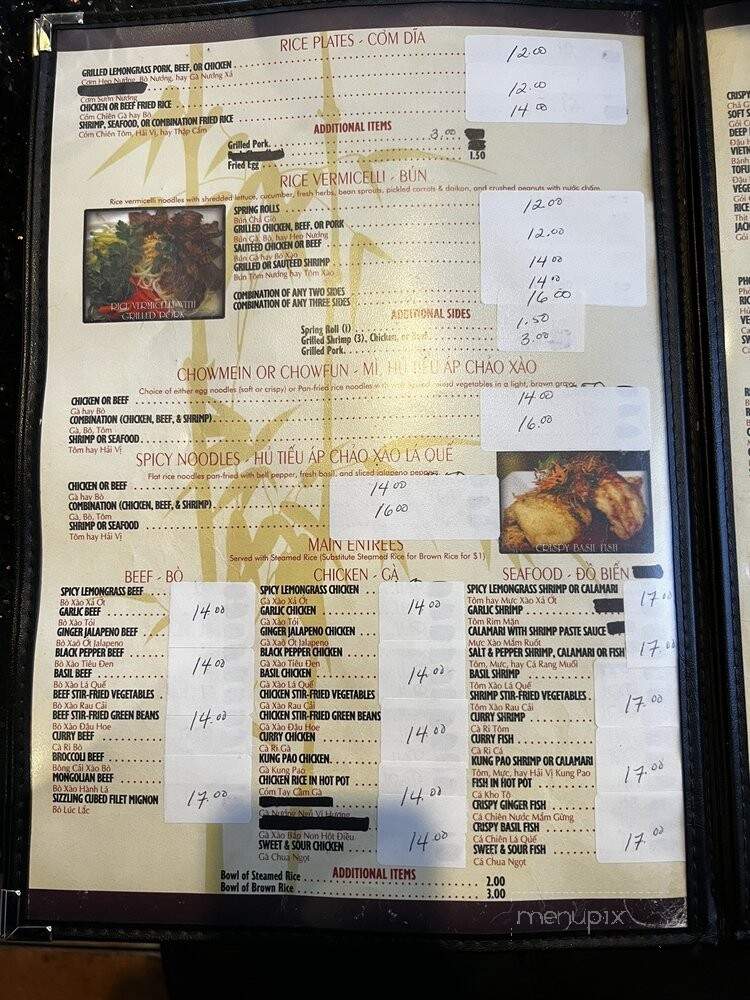 RICE PLATES - CƠM DĨA
GRILLED LEMONGRASS PORK, BEEF, OR CHICKEN 12.00
Cơm Heo Nướng, Bò Nướng, hay Gà Nướng Xả
Cơm Sườn Nướng
CHICKEN OR BEEF FRIED RICE 12.00
Cơm Chiên Gà hay Bò
SHRIMP, SEAFOOD, OR COMBINATION FRIED RICE 14.00
Cơm Chiên Tôm, Hải Vị, hay Thập Cẩm
ADDITIONAL ITEMS
Grilled Pork. 3.00
Fried Egg 1.50
RICE VERMICELLI - BÚN
Rice vermicelli noodles with shredded lettuce, cucumber, fresh herbs, bean sprouts, pickled carrots & daikon, and crushed peanuts with nước chấm
SPRING ROLLS 12.00
Bún Chả Giò
GRILLED CHICKEN, BEEF, OR PORK 12.00
Bún Gà, Bò, hay Heo Nướng
SAUTÉED CHICKEN OR BEEF
Bún Gà hay Bò Xào
GRILLED OR SAUTÉED SHRIMP 14.00
Bún Tôm Nướng hay Tôm Xào
COMBINATION OF ANY TWO SIDES 14.00
COMBINATION OF ANY THREE SIDES 16.00
RICE VERMICELLI WITH
GRILLED PORK
ADDITIONAL SIDES
Spring Roll (1) 1.50
Grilled Shrimp (3), Chicken, or Beef 3.00
Grilled Pork
CHOWMEIN OR CHOWFUN - MÌ, HỦ TIẾU ÁP CHẢO XÀO
Choice of either egg noodles (soft or crispy) or Pan-fried rice noodles with vegetables in a light, brown gravy
CHICKEN OR BEEF 14.00
Gà hay Bò
COMBINATION (CHICKEN, BEEF, & SHRIMP) 16.00
Gà, Bò, Tôm
SHRIMP OR SEAFOOD
Tôm hay Hải Vị
SPICY NOODLES - HỦ TIẾU ÁP CHẢO XÀO LÁ QUẾ
Flat rice noodles pan-fried with bell pepper, fresh basil, and sliced jalapeno peppers
CHICKEN OR BEEF 14.00
Gà hay Bò
COMBINATION (CHICKEN, BEEF, & SHRIMP) 16.00
Gà, Bò, Tôm
SHRIMP OR SEAFOOD
Tôm hay Hải Vị
CRISPY BASIL FISH
MAIN ENTREES
Served with Steamed Rice (Substitute Steamed Rice for Brown Rice for $1)
BEEF - BÒ
SPICY LEMONGRASS BEEF
Bò Xào Xả Ớt
GARLIC BEEF 14.00
Bò Xào Tỏi
GINGER JALAPENO BEEF
Bò Xaõ Ớt Jalapeno
BLACK PEPPER BEEF
Bò Xào Tiêu Đen
BASIL BEEF 14.00
Bò Xào Lá Quế
BEEF STIR-FRIED VEGETABLES
Bò Xào Rau Cải
BEEF STIR-FRIED GREEN BEANS 14.00
Bò Xào Đậu Hoe
CURRY BEEF
Cà Ri Bò
BROCCOLI BEEF
Bông Cải Xào Bò
MONGOLIAN BEEF
Bò Xào Hành Lá
SIZZLING CUBED FILET MIGNON 17.00
Bò Lúc Lắc
CHICKEN - GÀ
SPICY LEMONGRASS CHICKEN
Gà Xào Xả Ớt
GARLIC CHICKEN 14.00
Gà Xào Tỏi
GINGER JALAPENO CHICKEN
Gà Xaõ Ớt Jalapeno
BLACK PEPPER CHICKEN
Gà Xào Tiêu Đen
BASIL CHICKEN 14.00
Gà Xào Lá Quế
CHICKEN STIR-FRIED VEGETABLES
Gà Xào Rau Cải
CHICKEN STIR-FRIED GREEN BEANS
Gà Xào Đậu Hoe
CURRY CHICKEN 14.00
Cà Ri Gà
KUNG PAO CHICKEN
Gà Kung Pao
CHICKEN RICE IN HOT POT 14.00
Cơm Tay Cầm Gà
Gà Nướng Ngũ Vị Hương
Gà Xào Bắp Non Hột Điều
SWEET & SOUR CHICKEN 14.00
Gà Chua Ngọt
SEAFOOD - ĐỒ BIỂN
SPICY LEMONGRASS SHRIMP OR CALAMARI 17.00
Tôm hay Mực Xào Xả Ớt
GARLIC SHRIMP
Tôm Rim Mặn
CALAMARI WITH SHRIMP PASTE SAUCE
Mực Xào Mắm Ruốt
SALT & PEPPER SHRIMP, CALAMARI OR FISH 17.00
Tôm, Mực, hay Cá Rang Muối
BASIL SHRIMP
Tôm Xào Lá Quế
SHRIMP STIR-FRIED VEGETABLES 17.00
Tôm Xào Rau Cải
CURRY SHRIMP
Cà Ri Tôm
CURRY FISH
Cà Ri Cá
KUNG PAO SHRIMP OR CALAMARI 17.00
Tôm, Mực, hay Hải Vị Kung Pao
FISH IN HOT POT
Cá Kho Tộ
CRISPY GINGER FISH
Cá Chiên Nước Mắm Gừng
CRISPY BASIL FISH 17.00
Cá Chiên Lá Quế
SWEET & SOUR FISH
Cá Chua Ngọt
ADDITIONAL ITEMS
Bowl of Steamed Rice 2.00
Bowl of Brown Rice 3.00
menupix